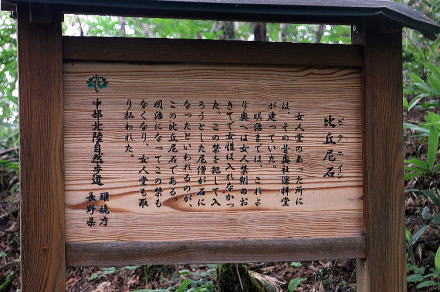 比丘尼石
ビクニイシ
女人堂のあった所に
は、その昔奥社遥拝堂
が建っていた。
明治までは、これよ
り奥へは女人禁制のお
きてで女性は入れなかっ
た。この禁を犯して入
ろうとした尼僧が石に
なったといわれるのが、
この比丘尼石である。
明治になってこの禁も
なくなり、女人堂も取
り払われた。
中部北陸自然歩道
環境庁
長野県